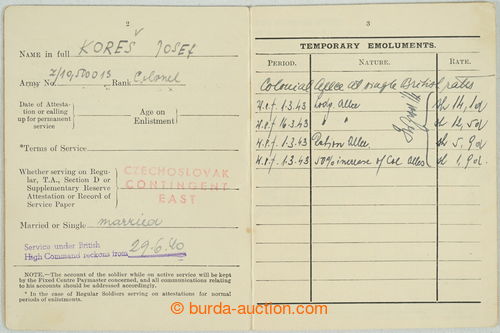 2
NAME in full KOREŠ JOSEF
Army No. Z/10,500013 Rank Colonel
Date of Attesta-
tion or calling
up for permanent
service
Age on
Enlistment
*Terms of Service
Whether serving on Regu-
lar, T.A., Section D or
Supplementary Reserve
Attestation or Record of
Service Paper
CZECHOSLOVAK
CONTINGENT
EAST
Married or Single married
Service under British
High Command reckons from 29.6.40
NOTE.—The account of the soldier while on active service will be kept
by the Fixed Centre Paymaster concerned, and all communications relating
to his accounts should be addressed accordingly.
* In the case of Regular Soldiers serving on attestations for normal
periods of enlistments.
3
TEMPORARY EMOLUMENTS.
PERIOD. NATURE. RATE.
Colonial Allce at single British rates
w.e.f. 1.3.43 Lodg. Allce sh 14,1d
w.e.f. 16.3.43 " " sh 12,5d
w.e.f. 1.3.43 Ration Allce. sh 5,9d
w.e.f. 1.3.43 50% increase of Col. Allces sh 1,9d.
© burda-auction.com